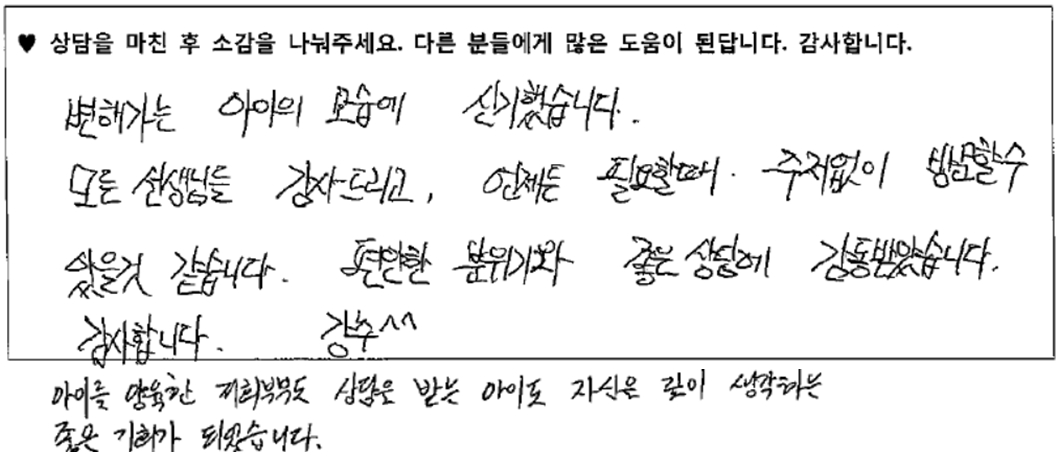 ♥ 상담을 마친 후 소감을 나눠주세요. 다른 분들에게 많은 도움이 된답니다. 감사합니다.
변해가는 아이의 모습에 신기했습니다.
모든 선생님들 감사드리고, 언제든 필요할때. 주저없이 방문할수
있을것 같습니다. 편안한 분위기와 좋은 상담에 감동받았습니다.
감사합니다. 강추^^
아이를 양육한 저희부부도 상담은 받는 아이도 자신은 깊이 생각하는
좋은 기회가 되었습니다.